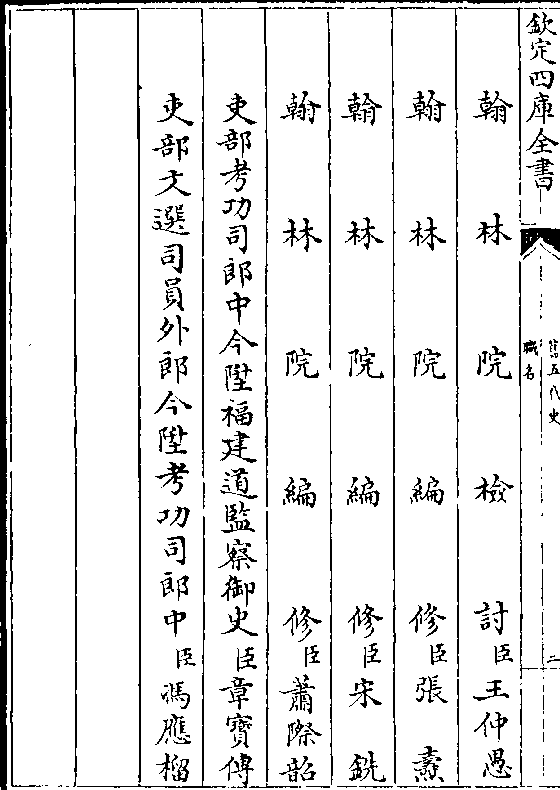 欽定四庫全書
舊五代史
職名
二
翰林院檢討臣王仲愚
翰林院編修臣張燾
翰林院編修臣宋銑
翰林院編修臣蕭際韶
吏部考功司郎中今陞福建道監察御史臣章寶傳
吏部文選司員外郎今陞考功司郎中臣馮應榴